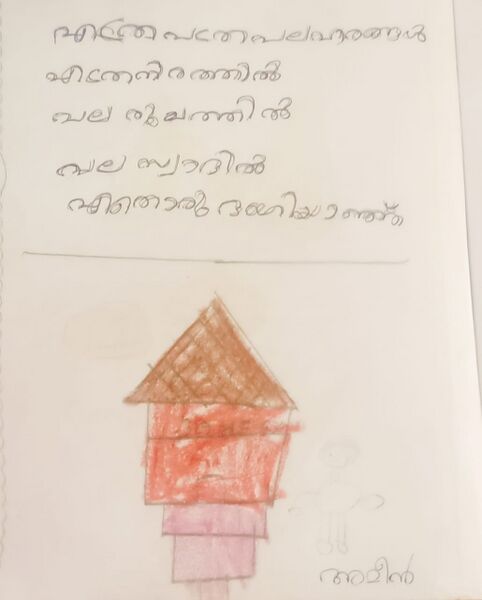 എത്രേ പത്രേ പലഹാരങ്ങൾ
എത്രേനിരത്തിൽ
പല രൂപത്തിൽ
പല സ്വാദിൽ
എന്തൊരു ഭംഗിയാണ്
അമീൻ